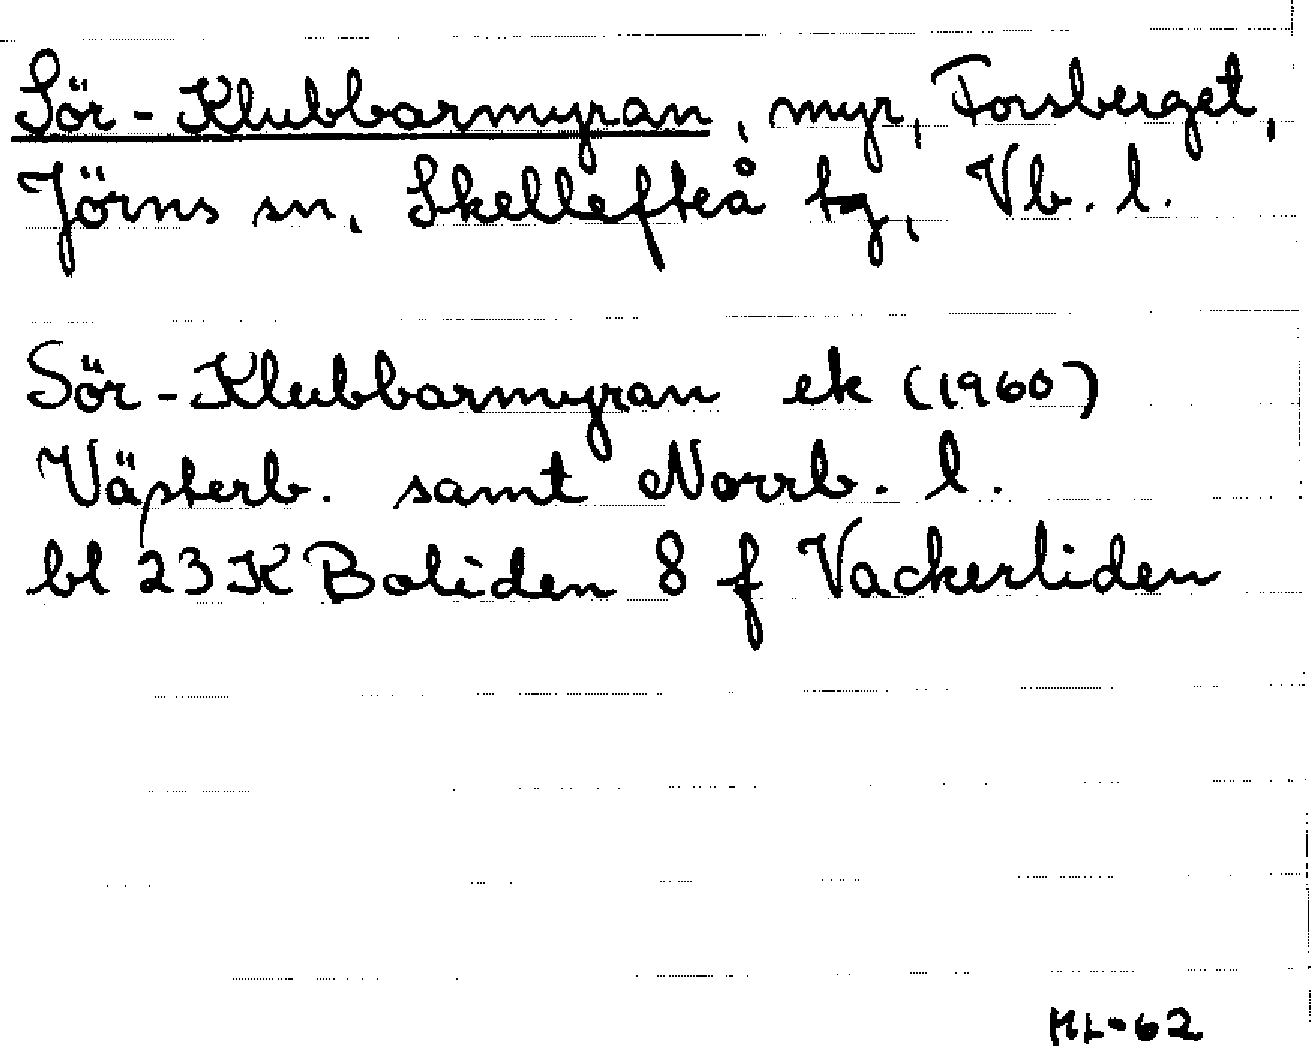 Sör-Klubbarmyran, myr, Forsberget,
Jörns sn, Skellefteå tg, Vb. l.
Sör-Klubbarmyran ek (1960)
Västerb. samt Norrb. l.
bl 23 K Boliden 8 f Vackerliden
HL-62